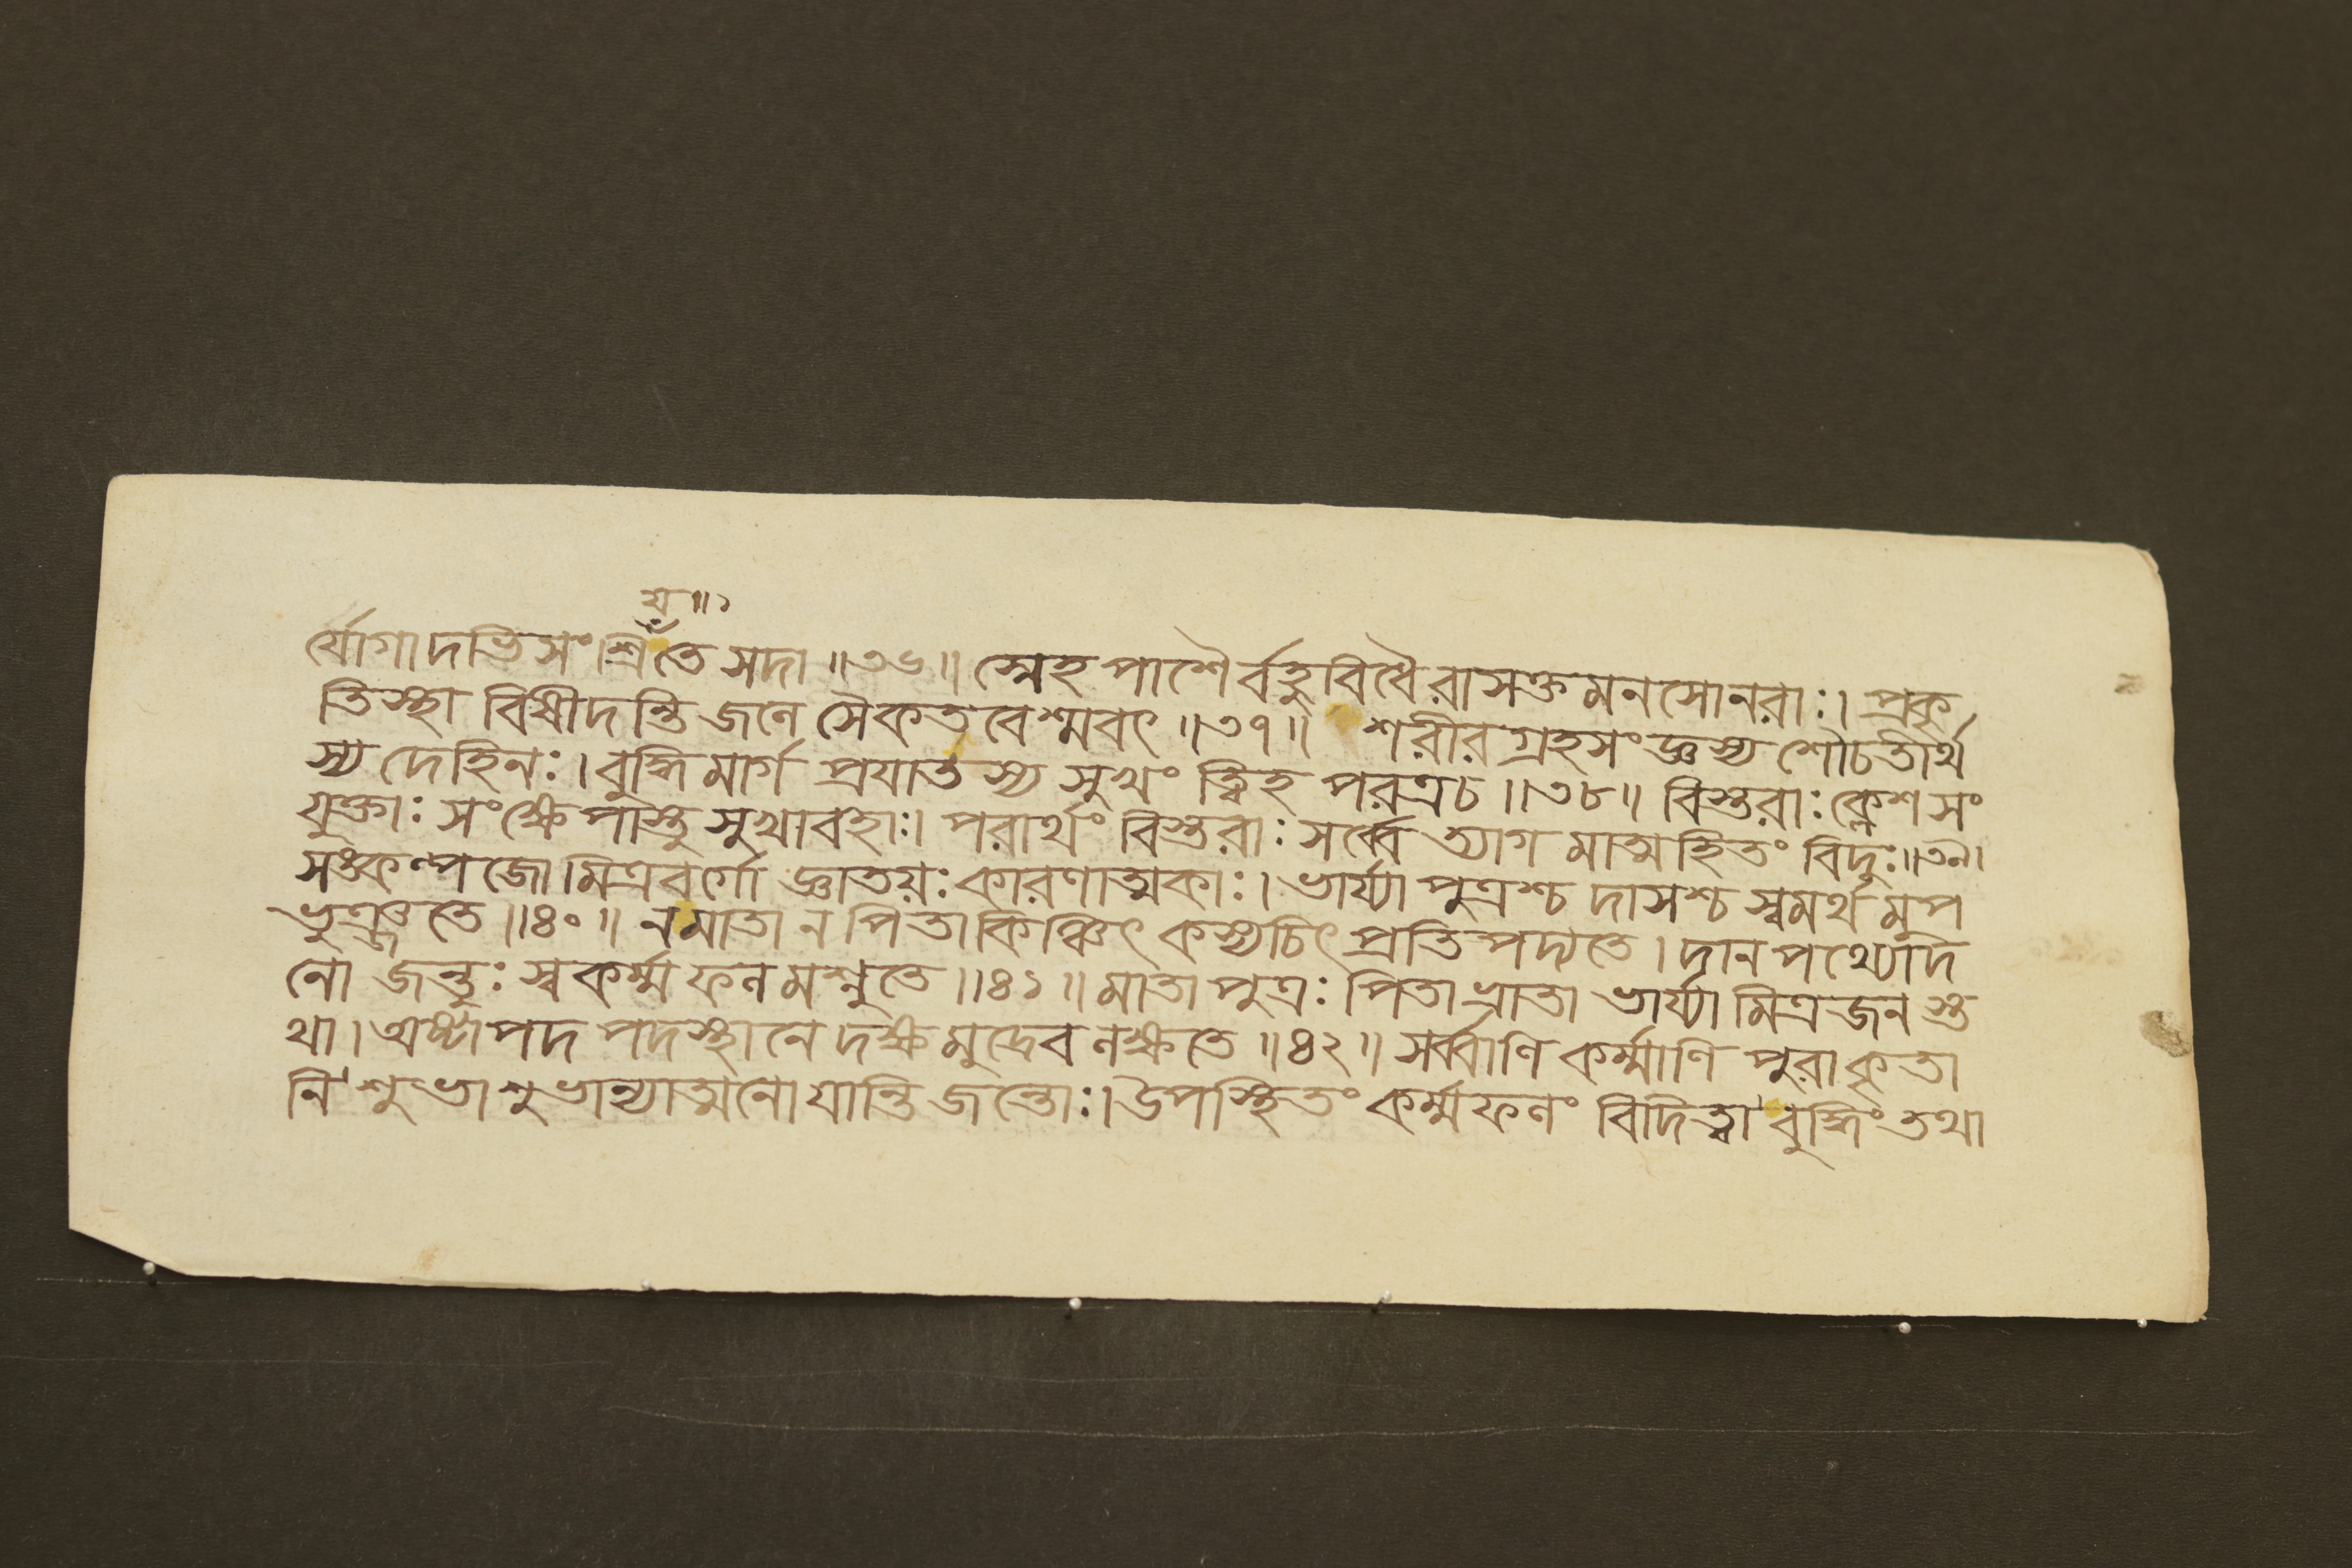 য়॥১
র্যোগাদভিসংশ্রিতে সদা॥৩৬॥ স্নেহপাশৈর্বহুবিধৈরাসক্তমনসোনরাঃ। প্রকৃ
তিস্থা বিষীদন্তি জলে সৈকতবেশ্মবৎ॥৩৭॥ শরীরগ্রহসংজ্ঞস্য শৌচতীর্থ
স্য দেহিনঃ। বুদ্ধিমার্গ প্রযাতস্য সুখং ত্বিহ পরত্রচ॥৩৮॥ বিস্তরাঃ ক্লেশসং
যুক্তাঃ সংক্ষেপাস্তু সুখাবহাঃ। পরার্থং বিস্তরাঃ সর্ব্বে ত্যাগমাত্মহিতং বিদুঃ॥৩৯।
সঙ্কল্পজো মিত্রবর্গো জ্ঞাতয়ঃ কারণাত্মকাঃ। ভার্য্যা পুত্রশ্চ দাসশ্চ স্বমর্থমুপ
ভুঞ্জতে॥৪০॥ নমাতা ন পিতা কিঞ্চিৎ কস্যচিৎ প্রতিপদ্যতে। দানপথ্যোদি
নো জন্তুঃ স্বকর্ম্মফলমশ্নুতে॥৪১॥ মাতা পুত্রঃ পিতা ভ্রাতা ভার্য্যা মিত্রজনস্ত
থা। অষ্টাপদ পদস্থানে দক্ষমুদ্রেব লক্ষতে॥৪২॥ সর্ব্বাণি কর্ম্মাণি পুরাকৃতা
নি শুভাশুভান্যাত্মনো যান্তি জন্তোঃ। উপস্থিতং কর্ম্মফলং বিদিত্বা বুদ্ধিং তথা